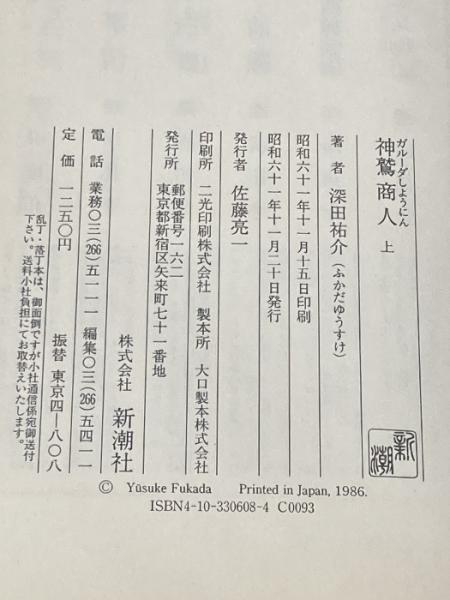 ガルーダしようにん
神鷲商人 上
著者 深田祐介(ふかだゆうすけ)
昭和六十一年十一月十五日印刷
昭和六十一年十一月二十日発行
発行者 佐藤亮一
印刷所 二光印刷株式会社 製本所 大口製本株式会社
発行所 郵便番号一六二
東京都新宿区矢来町七十一番地
株式会社 新潮社
電話 業務〇三(266)五一一一 編集〇三(266)五四一一
定価 一二五〇円 振替 東京四―八〇八
乱丁・落丁本は、御面倒ですが小社通信係宛御送付
下さい。送料小社負担にてお取替えいたします。
新潮
© Yūsuke Fukada Printed in Japan, 1986.
ISBN4-10-330608-4 C0093